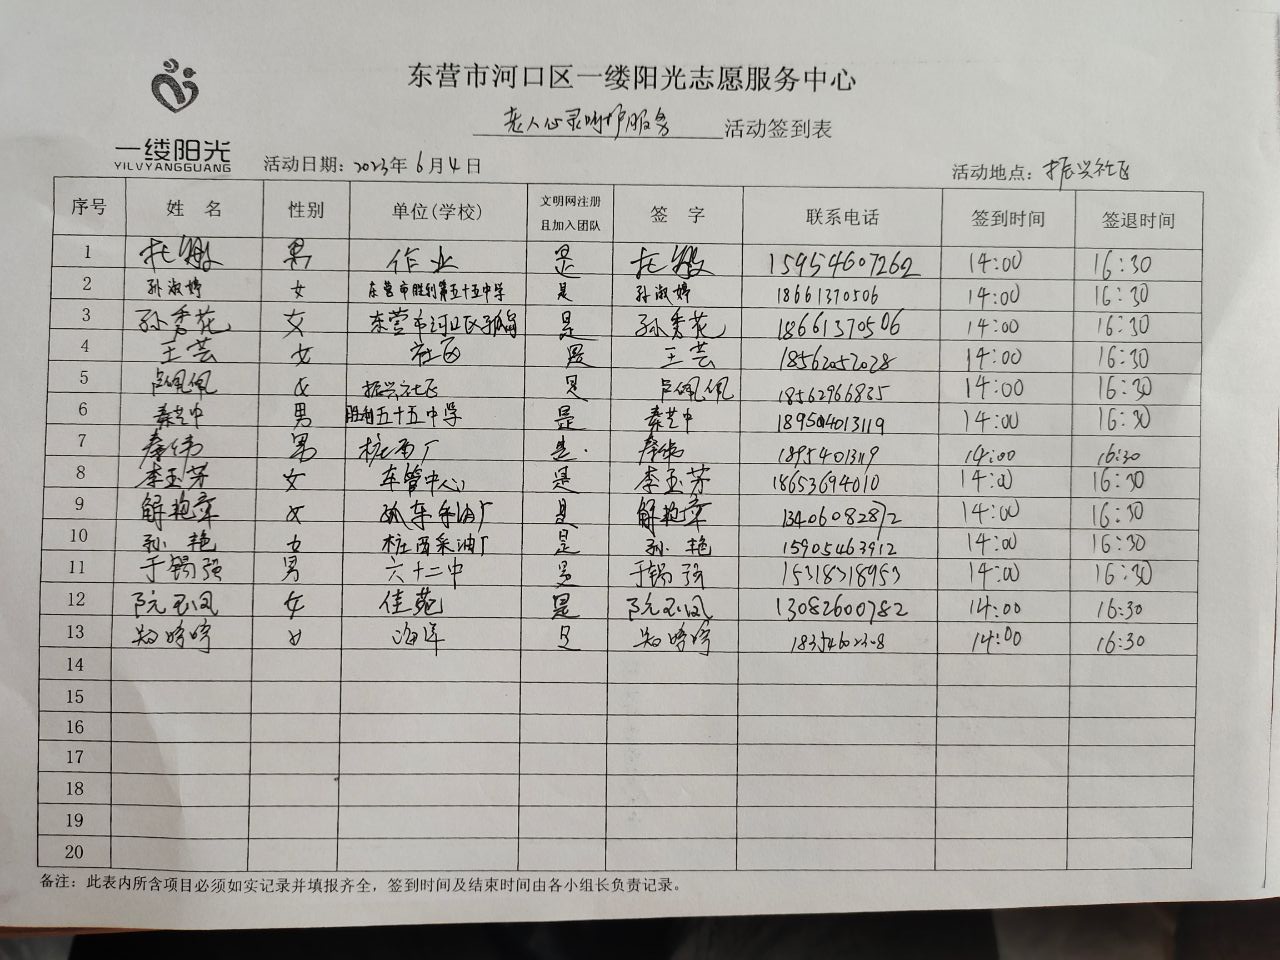 东营市河口区一缕阳光志愿服务中心
老人心灵呵护服务 活动签到表
一缕阳光
YILVYANGGUANG
活动日期：2023年6月4日 活动地点：振兴社区
序号 姓名 性别 单位(学校) 文明网注册且加入团队 签字 联系电话 签到时间 签退时间
1 男 作业 是 15954607262 14:00 16:30
2 孙淑婷 女 东营市胜利第五十五中学 是 孙淑婷 18661370506 14:00 16:30
3 孙秀花 女 东营市河口区孤岛 是 孙秀花 18661370506 14:00 16:30
4 王芸 女 社区 是 王芸 18562052028 14:00 16:30
5 卢佩佩 女 振兴社区 是 卢佩佩 18562966835 14:00 16:30
6 秦艺中 男 胜利五十五中学 是 秦艺中 18954013119 14:00 16:30
7 秦伟 男 桩西厂 是. 秦伟 18954013119 14:00 16:30
8 李玉芳 女 车管中心 是 李玉芳 18653694010 14:00 16:30
9 解艳章 女 孤东采油厂 是 解艳章 13406082872 14:00 16:30
10 孙艳 女 桩西采油厂 是 孙艳 15905463912 14:00 16:30
11 于锡强 男 六十二中 是 于锡强 15318318953 14:00 16:30
12 阮玉凤 女 佳苑 是 阮玉凤 13082600782 14:00 16:30
13 郑婷婷 女 海洋 是 郑婷婷 14:00 16:30
14
15
16
17
18
19
20
备注：此表内所含项目必须如实记录并填报齐全，签到时间及结束时间由各小组长负责记录。